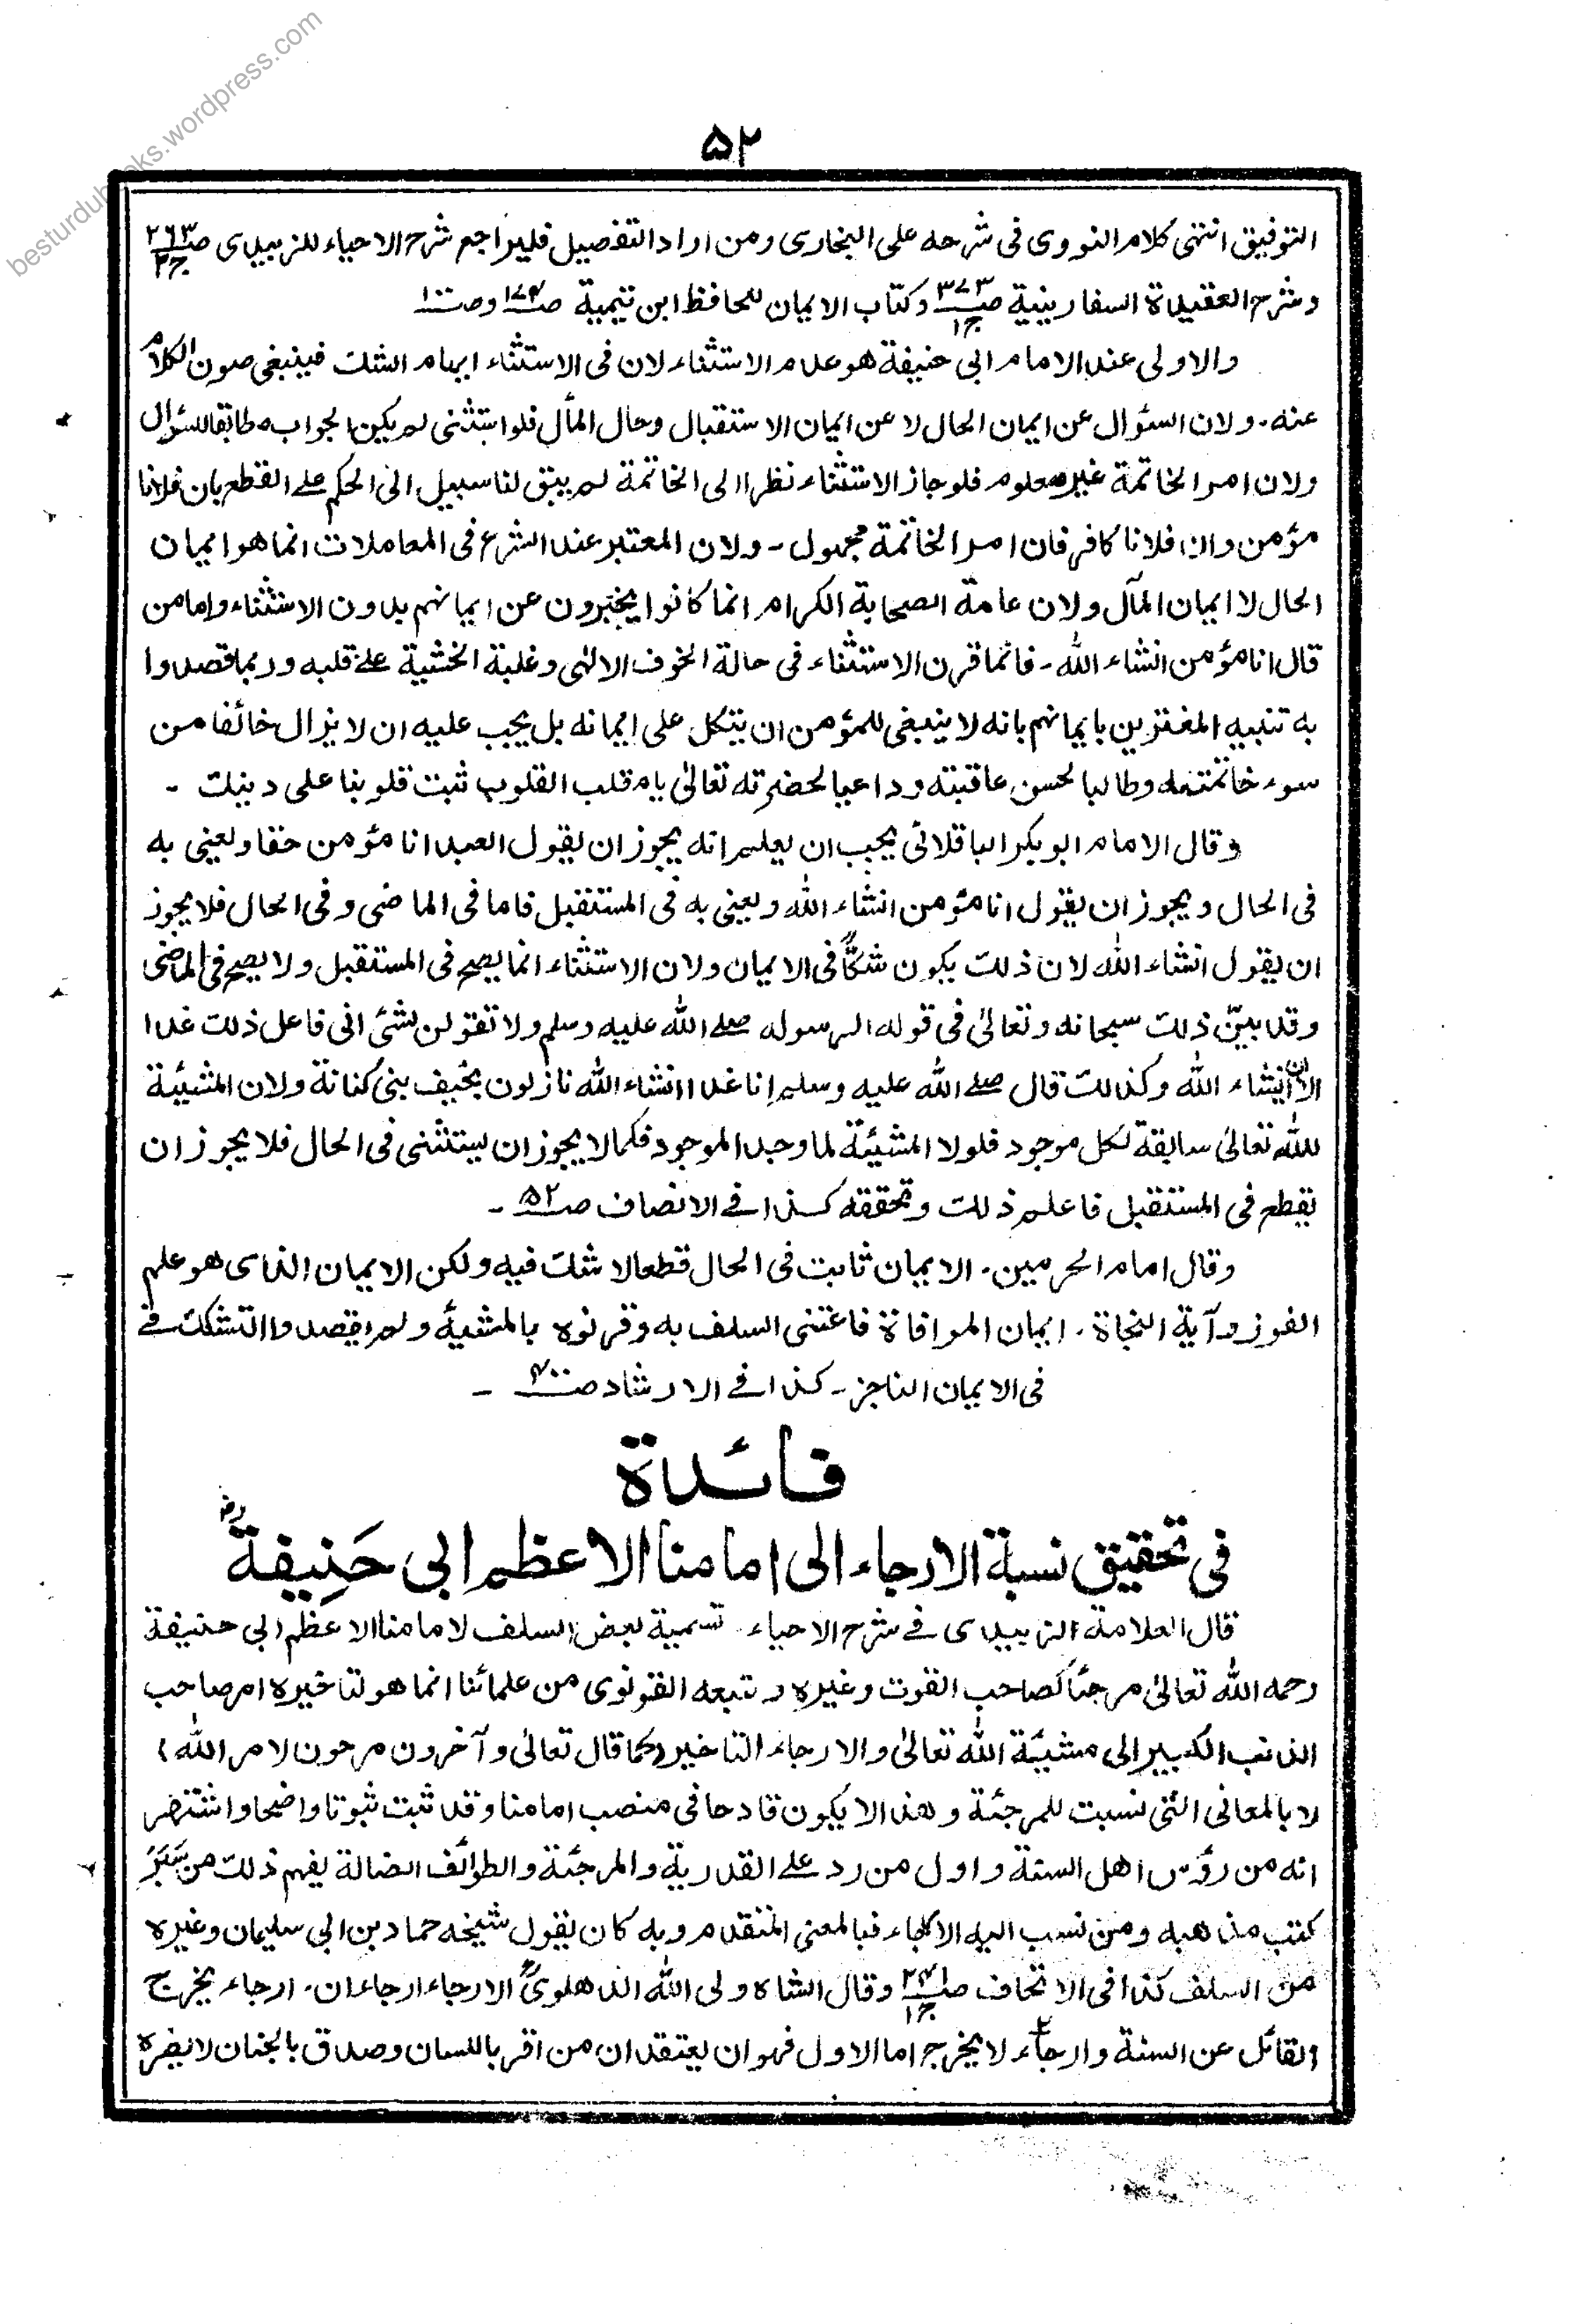 besturdubooks.wordpress.com
۵۲
التوفیق انتهی کلام النووی فی شرحه علی البخاری ومن اراد التفصیل فلیراجع شرح الاحیاء للزبیدی صـ۲۶۳ ج۲
وشرح العقیدة السفارینیة صـ۳۷۳ ج۱ وکتاب الایمان للحافظ ابن تیمیة صـ۱۷۴ وصـ۱۰۰
والاولی عند الامام ابی حنیفة هو عدم الاستثناء لان فی الاستثناء ایهام الشک فینبغی صون الکلام
عنه۔ ولان السئوال عن ایمان الحال لا عن ایمان الاستقبال وحال المأل فلو استثنی لم یکن الجواب مطابقا للسئوال
ولان امر الخاتمة غیر معلوم فلو جاز الاستثناء نظرا الی الخاتمة لم یبق لنا سبیل الی الحکم علے القطع بان فلانا
مؤمن وان فلانا کافر فان امر الخاتمة مجهول۔ ولان المعتبر عند الشرع فی المعاملات انما هو ایمان
الحال لا ایمان المآل ولان عامة الصحابة الکرام انما کانوا یخبرون عن ایمانهم بدون الاستثناء واما من
قال انا مؤمن انشاء الله۔ فانما قرن الاستثناء فی حالة الخوف الالٰهی وغلبة الخشیة علے قلبه وربما قصدوا
به تنبیه المغترین بایمانهم بانه لا ینبغی للمؤمن ان یتکل علی ایمانه بل یجب علیه ان لا یزال خائفا من
سوء خاتمته وطالبا لحسن عاقبته وداعیا لحضرته تعالیٰ یا مقلب القلوب ثبت قلوبنا علی دینک ۔
وقال الامام ابوبکر الباقلانی یجب ان یعلم انه یجوز ان یقول العبد انا مؤمن حقا ویعنی به
فی الحال ویجوز ان یقول انا مؤمن انشاء الله ویعنی به فی المستقبل فاما فی الماضی وفی الحال فلا یجوز
ان یقول انشاء الله لان ذلک یکون شکًّا فی الایمان ولان الاستثناء انما یصح فی المستقبل ولا یصح فی الماضی
وقد بیّن ذلک سبحانه وتعالیٰ فی قوله لرسوله صلے الله علیه وسلم ولا تقولن لشئ انی فاعل ذلک غدا
الا ان یشاء الله وکذلک قال صلے الله علیه وسلم انا غدا انشاء الله نازلون بخیف بنی کنانة ولان المشیئة
لله تعالیٰ سابقة لکل موجود فلولا المشیئة لما وجد الموجود فکما لا یجوز ان یستثنی فی الحال فلا یجوز ان
یقطع فی المستقبل فاعلم ذلک وتحققه کذا فے الانصاف صـ۵۲ ۔
وقال امام الحرمین۔ الایمان ثابت فی الحال قطعا لا شک فیه ولکن الایمان الذی هو علم
الفوز وآیة النجاة۔ ایمان الموافاة فاعتنی السلف به وقرنوه بالمشیة ولم یقصدوا التشکک فے
فی الایمان الناجز۔ کذا فے الارشاد صـ۴۰۰ ۔
فائدة
فی تحقیق نسبة الارجاء الی امامنا الاعظم ابی حَنِیفة رض
قال العلامة الزبیدی فے شرح الاحیاء۔ تسمیة بعض السلف لامامنا الاعظم ابی حنیفة
رحمه الله تعالیٰ مرجئا کصاحب القوت وغیره وتبعه القونوی من علمائنا انما هو لتاخیره امر صاحب
الذنب الکبیر الی مشیئة الله تعالیٰ والارجاء التاخیر (کما قال تعالیٰ وآخرون مرجون لامر الله)
لا بالمعانی التی نسبت للمرجئة وهذا لا یکون قادحا فی منصب امامنا وقد ثبت ثبوتا واضحا واشتهر
انه من رؤس اهل السنة واول من رد علے القدریة والمرجئة والطوائف الضالة یفهم ذلک من سَبَرَ
کتب مذهبه ومن نسب الیه الارجاء فبالمعنی المتقدم وبه کان یقول شیخه حماد بن ابی سلیمان وغیره
من السلف کذا فی الاتحاف صـ۲۴ ج۱ وقال الشاه ولی الله الدهلویؒ الارجاء ارجاءان۔ ارجاء یخرج
القائل عن السنة وارجاء لا یخرج اما الاول فهو ان یعتقد ان من اقر باللسان وصدق بالجنان لا یضره